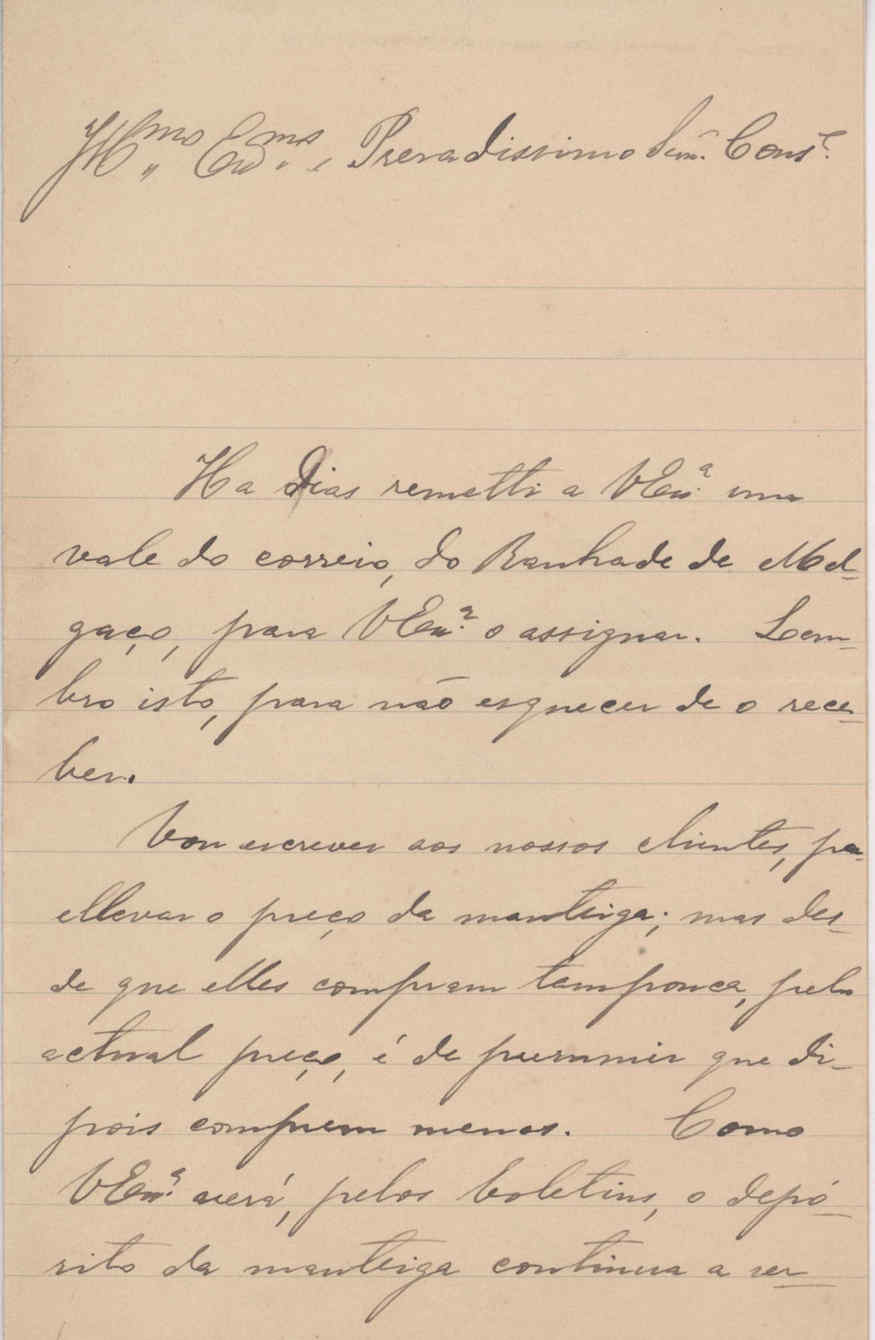 Illmo Exmo e Presadissimo Snr. Consro
Ha dias remetti a VExa um
vale do correio, do Ranhada de Mel-
gaço, para VExa o assignar. Lem-
bro isto, para não esquecer de o rece-
ber.
Vou escrever aos nossos clientes, pa-
ellevar o preço da manteiga; mas des-
de que elles compram tam pouca, pelo
actual preço, é de presumir que di-
pois comprem menos. Como
VExa verá, pelos boletins, o depó-
sito da manteiga continua a ser